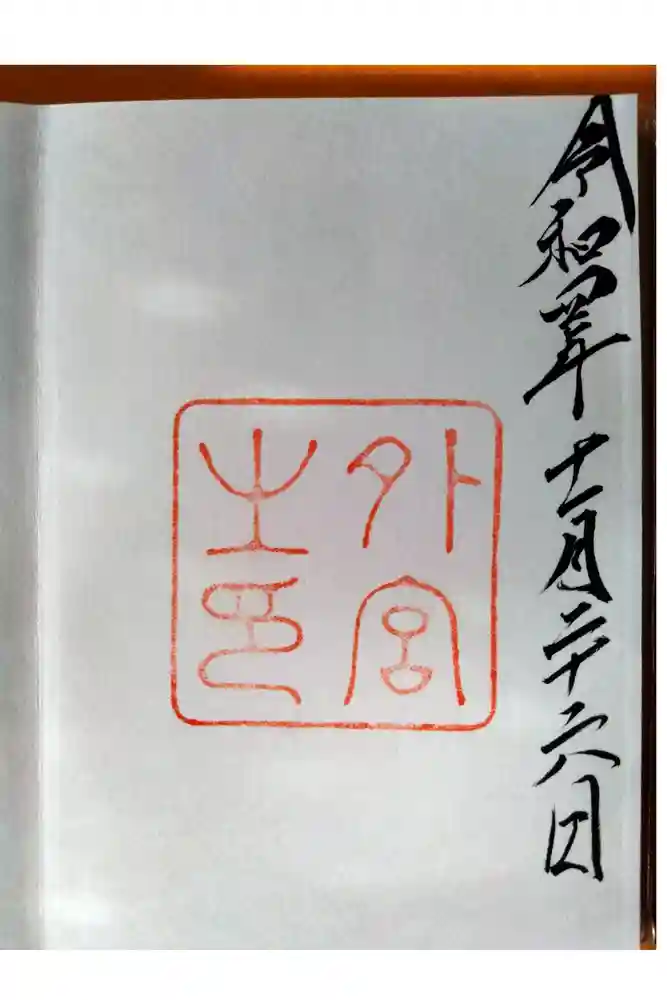 令和四年十一月二十六日
外宮
之印